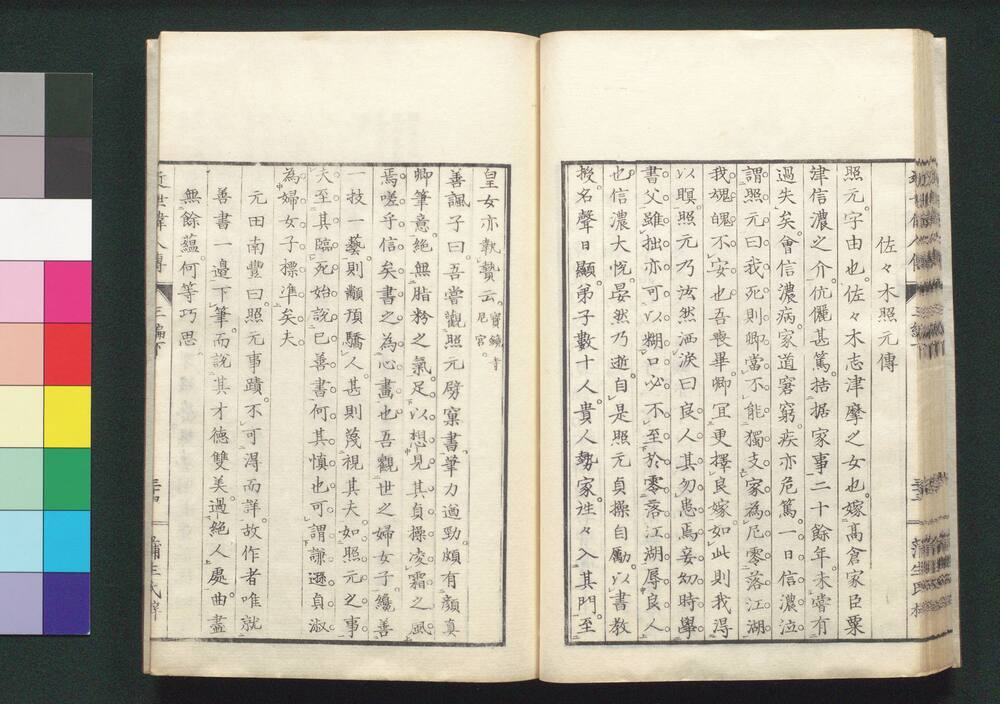 佐々木照元傳
照元。字由也。佐々木志津摩之女也。嫁髙倉家臣粟
津信濃之介。伉儷甚篤。拮据家事二十餘年。未嘗有
過失矣。會信濃病。家道窘窮。疾亦危篤。一日信濃泣
謂照元曰。我死則卿當不能獨支家。為尼零落江湖。
我魂魄不安也。吾喪畢。卿冝更擇良嫁。如此則我得
以瞑。照元乃泫然洒淚曰。良人其勿患焉。妾幼時學
書父。雖拙亦可以糊口。必不至於零落江湖。辱良人
也。信濃大悅。晏然乃逝。自是照元貞操自勵。以書教
授。名聲日顯。弟子數十人。貴人勢家。往々入其門。至
皇女亦執贄云。寶鏡寺尼宮。
善諷子曰。吾嘗觀照元劈窠書。筆力遒勁。頗有顏真
卿筆意。絕無脂粉之氣。足以想見其貞操凌霜之風
焉。嗟乎信矣。書之為心畫也。吾觀世之婦女子。纔善
一技一藝。則顢頇驕人。甚則蔑視其夫。如照元之事
夫。至其臨死。始說已善書。何其慎也。可謂謙遜貞淑
為婦女子標準矣夫。
元田南豐曰。照元事蹟。不可得而詳。故作者唯就
善書一邊下筆。而說其才德雙美。過絕人處。曲盡
無餘蘊。何等巧思
近世偉人傳
三編下
蒲生氏梓